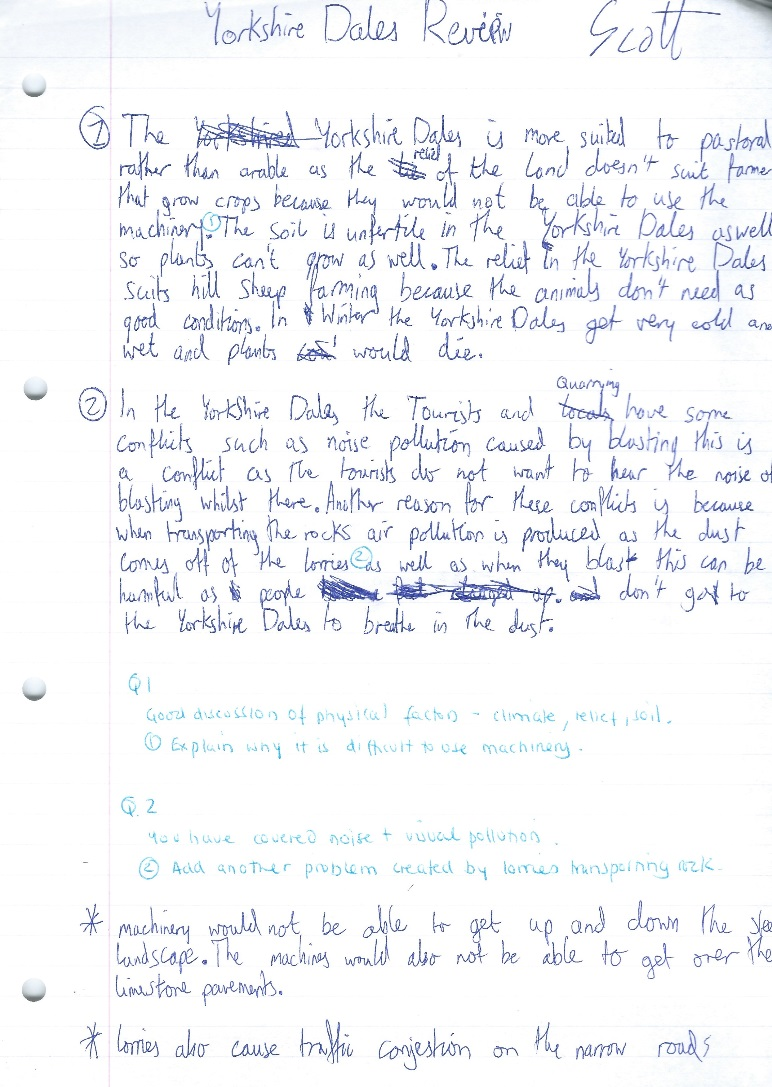 Yorkshire Dales Review Scott
① The Yorkshire Dales is more suited to pastoral
rather than arable as the relief of the land doesn't suit farmer
that grow crops because they would not be able to use the
machinery.① The soil is unfertile in the Yorkshire Dales aswell
so plants can't grow as well. The relief in the Yorkshire Dales
suits hill sheep farming because the animals don't need as
good conditions. In Winter the Yorkshire Dales get very cold and
wet and plants would die.
② In the Yorkshire Dales the Tourists and Quarrying have some
conflicts such as noise pollution caused by blasting this is
a conflict as the tourists do not want to hear the noise of
blasting whilst there. Another reason for these conflicts is because
when transporting the rocks air pollution is produced as the dust
comes off of the lorries ② as well as when they blast this can be
harmful as people don't go to
the Yorkshire Dales to breathe in the dust.
Q1
Good discussion of physical factors - climate, relief, soil.
① Explain why it is difficult to use machinery.
Q.2
You have covered noise + visual pollution.
② Add another problem created by lorries transporting rock.
* machinery would not be able to get up and down the
landscape. The machines would also not be able to get over the
limestone pavements.
* lorries also cause traffic conjestion on the narrow roads